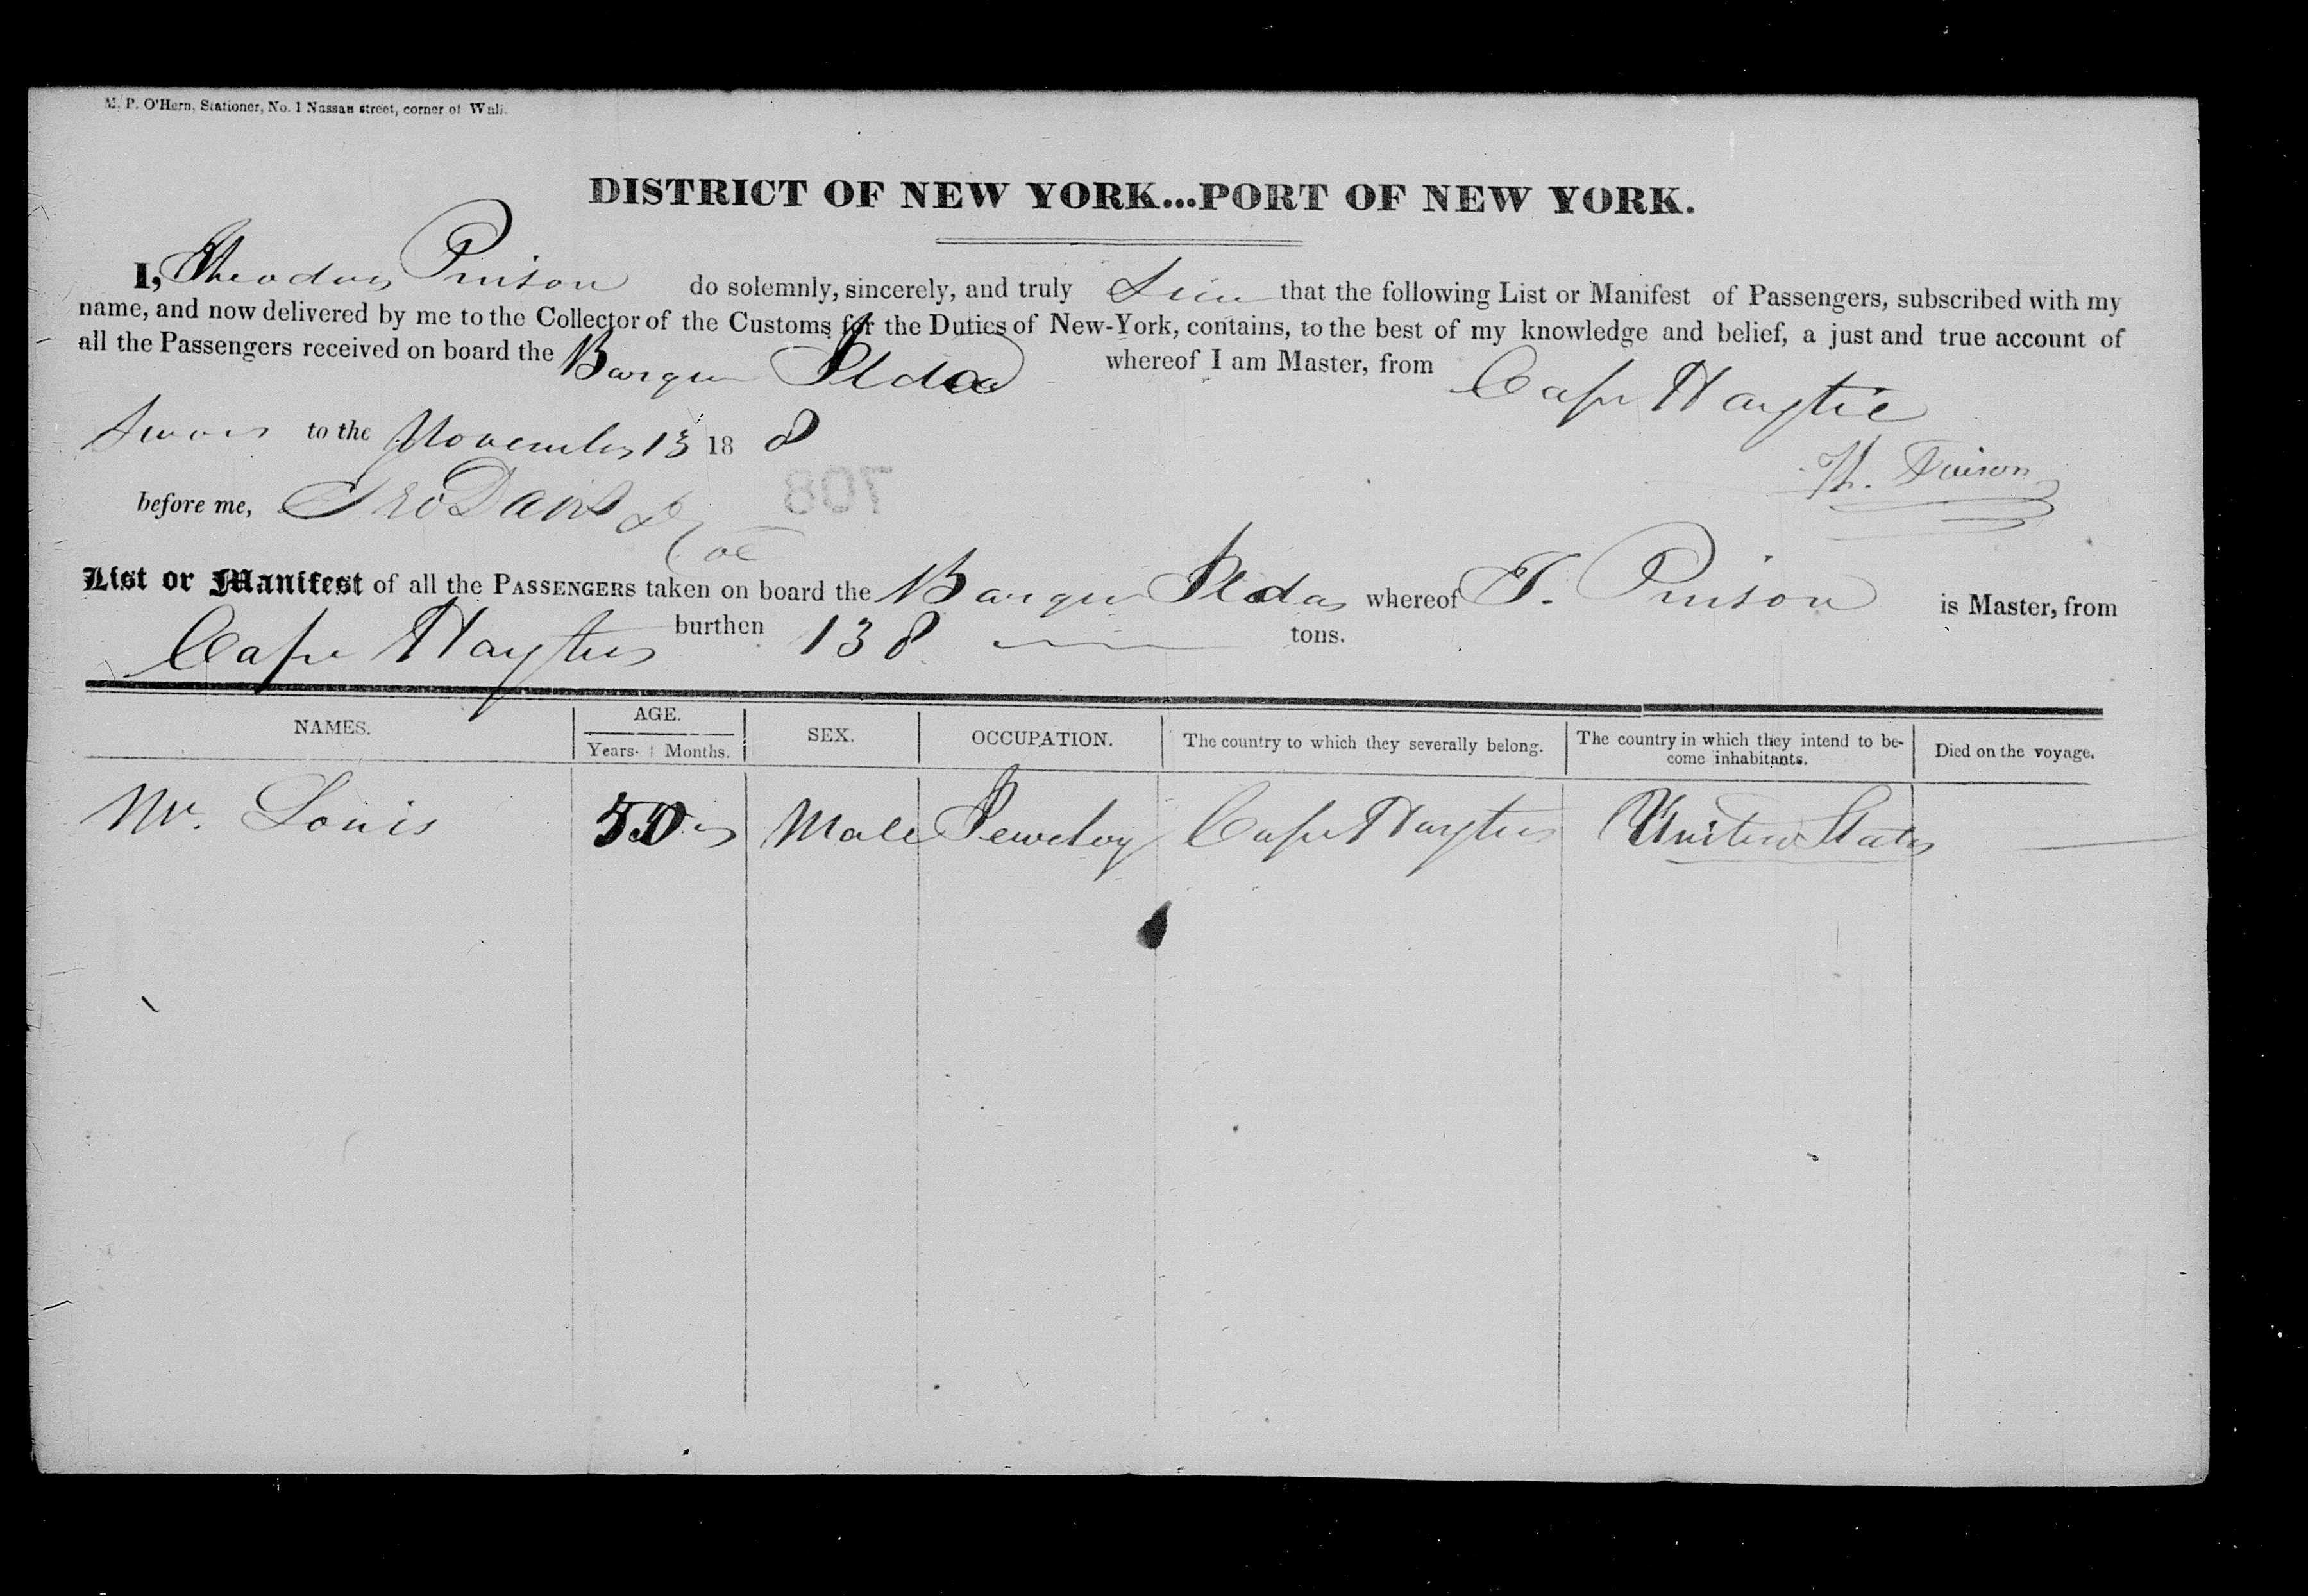 M. P. O'Hern, Stationer, No. 1 Nassau street, corner of Wall.
DISTRICT OF NEW YORK...PORT OF NEW YORK.
I, do solemnly, sincerely, and truly that the following List or Manifest of Passengers, subscribed with my
name, and now delivered by me to the Collector of the Customs for the Duties of New-York, contains, to the best of my knowledge and belief, a just and true account of
all the Passengers received on board the Barque whereof I am Master, from Cape Haytie
to the November 13 18 8
708
before me, Geo Davis
List or Manifest of all the PASSENGERS taken on board the Barque whereof T. is Master, from
Cape burthen 138 tons.
NAMES. AGE. SEX. OCCUPATION. The country to which they severally belong. The country in which they intend to be- Died on the voyage.
Years. Months. come inhabitants.
Mr. Louis 50 Male Cape United States